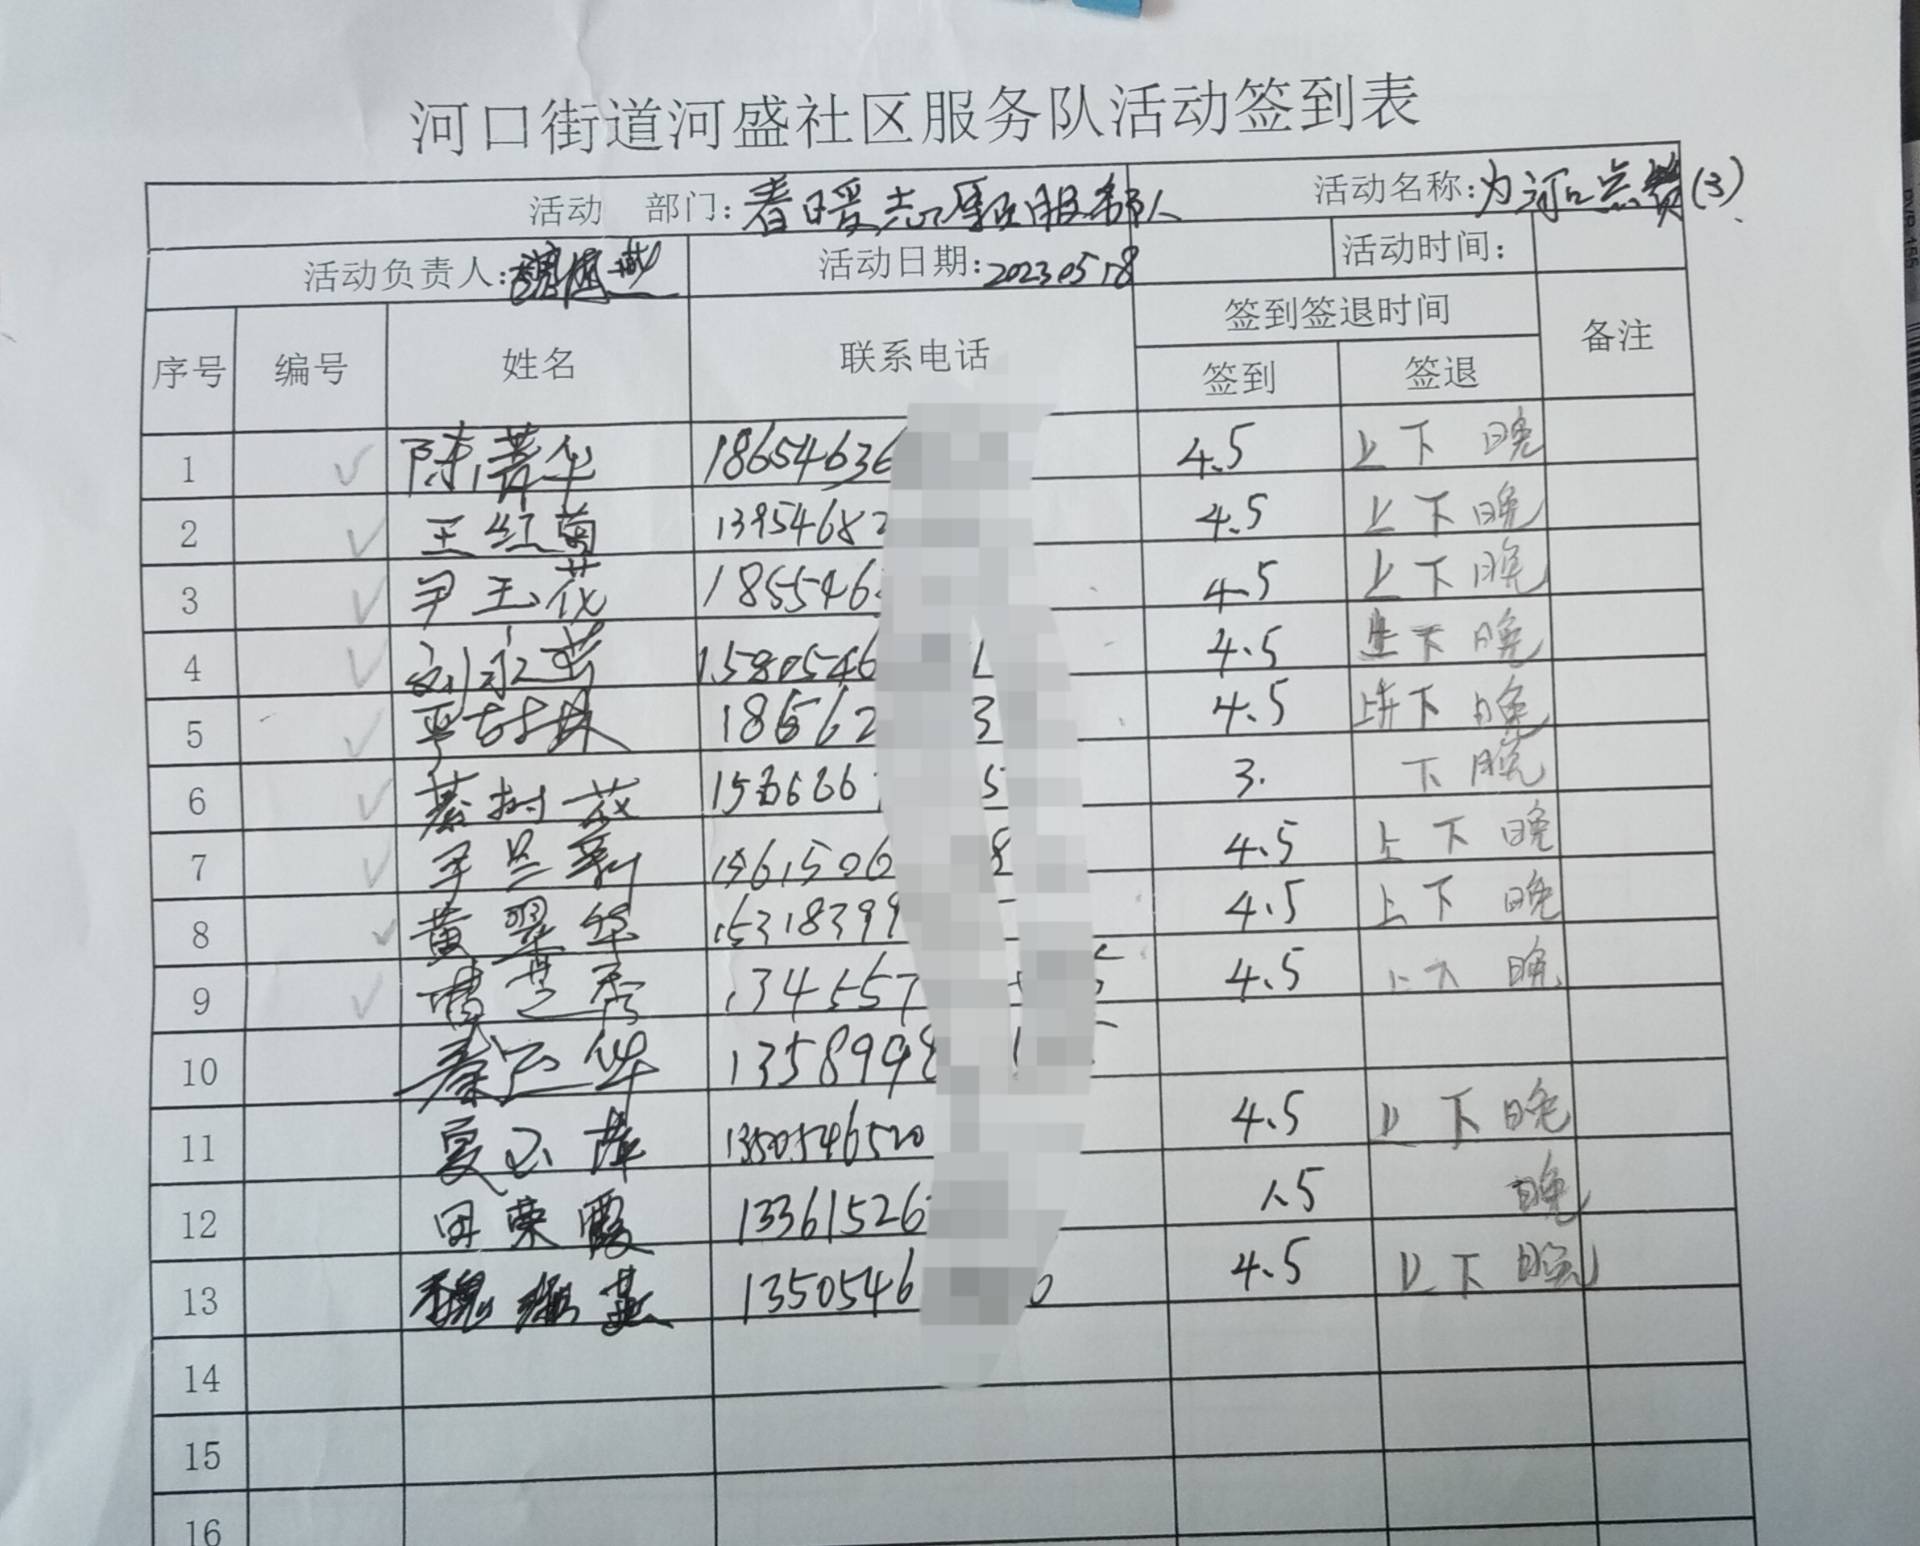 河口街道河盛社区服务队活动签到表
活动 部门：春暖志愿服务队 活动名称：为河口点赞(3)
活动负责人： 活动日期：2023.05.18 活动时间：
序号 编号 姓名 联系电话 签到签退时间 备注
签到 签退
1 ✓ 陈菁华 18654636 4.5 上 下 晚
2 ✓ 王红菊 1395468 4.5 上 下 晚
3 ✓ 尹玉花 1855463 4.5 上 下 晚
4 ✓ 刘永芳 15805466 1 4.5 上 下 晚
5 ✓ 18662 3 4.5 上 下 晚
6 ✓ 綦树花 156666 5 3. 下 晚
7 ✓ 王兰 1561506 8 4.5 上 下 晚
8 ✓ 黄翠华 15318399 4.5 上 下 晚
9 ✓ 曹芝秀 134557 4.5 上 下 晚
10 秦云华 1358998 1
11 夏玉萍 13505465 4.5 上 下 晚
12 田荣霞 13361526 1.5 晚
13 魏 燕 13505460 4.5 上 下 晚
14
15
16